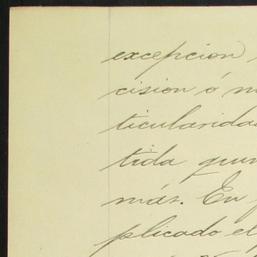 excepcion
cision ó
ticularida
tida quin
más. En
plicado el